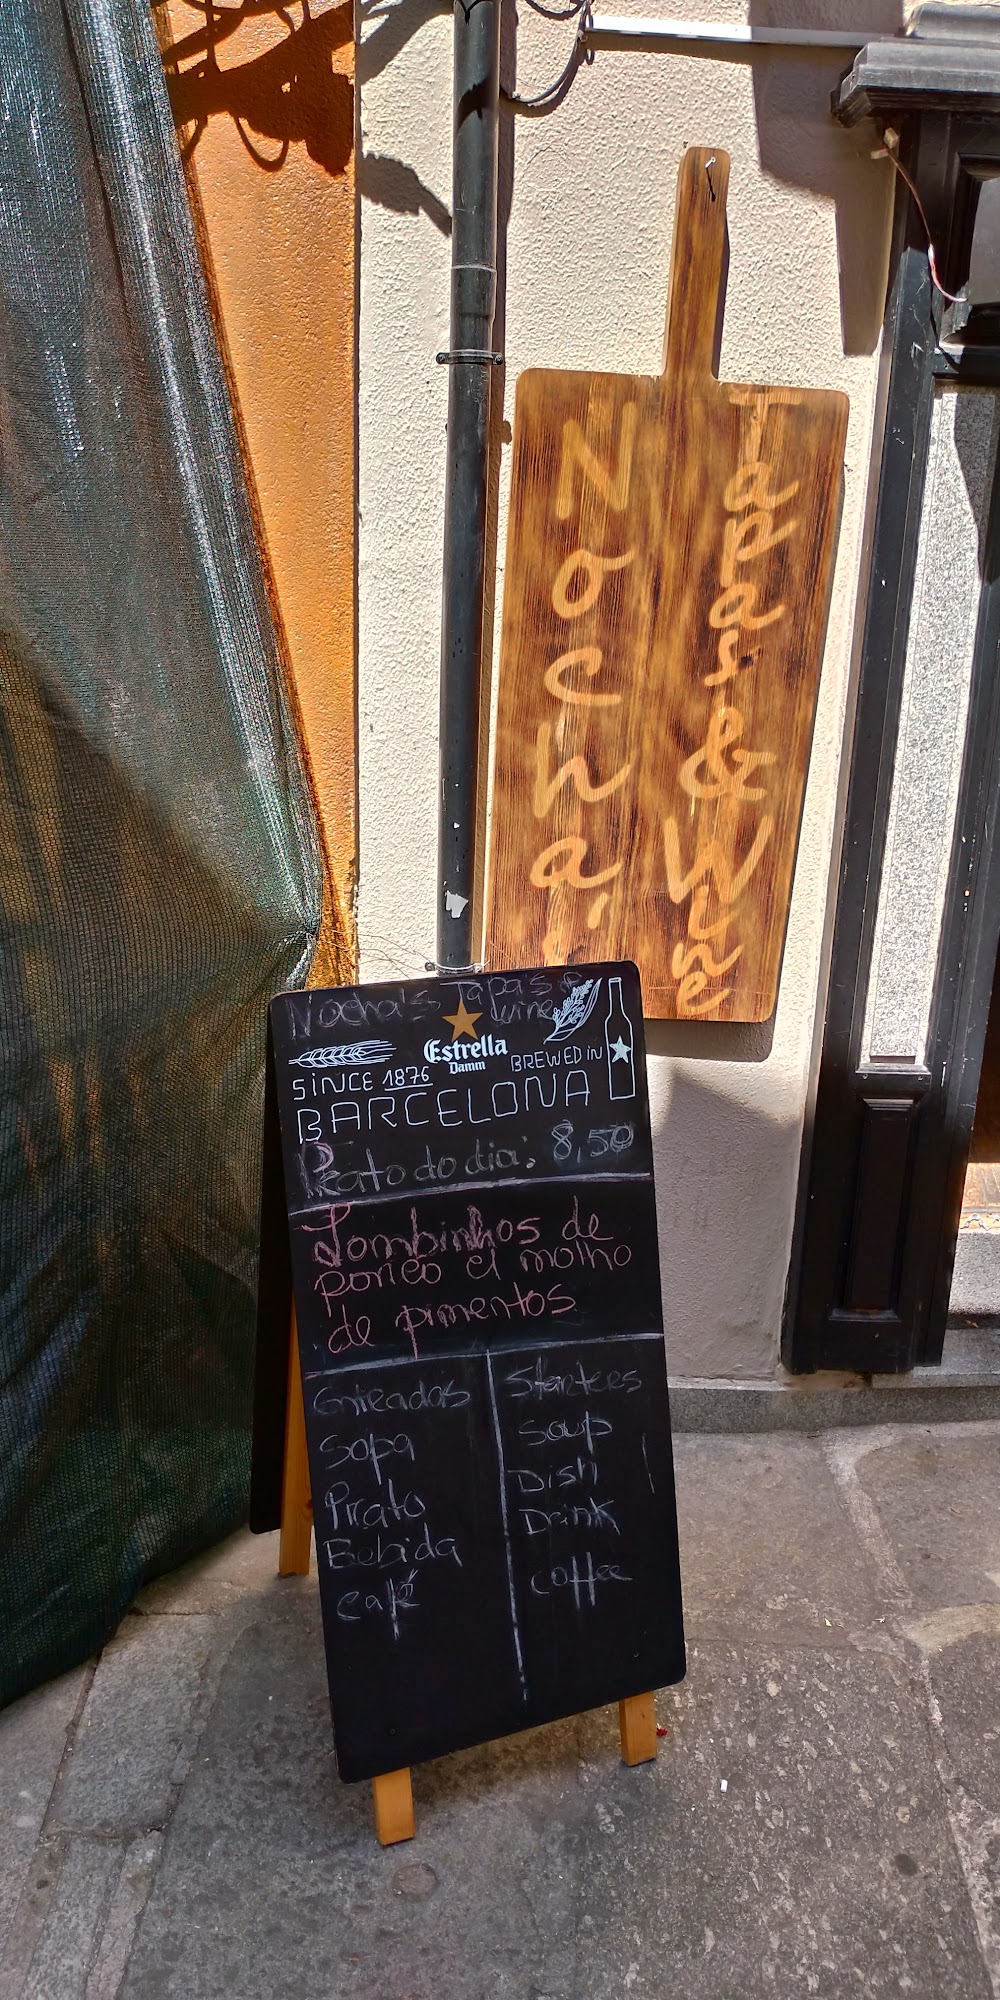 Nocha's
Tapas & Wine
Nocha's Tapas &
wine
Estrella
Damm
SINCE 1876
BREWED IN
BARCELONA
Prato do dia: 8,50
Lombinhos de
porco c/ molho
de pimentos
Entradas
Sopa
Prato
Bebida
Café
Starters
Soup
Dish
Drink
Coffee